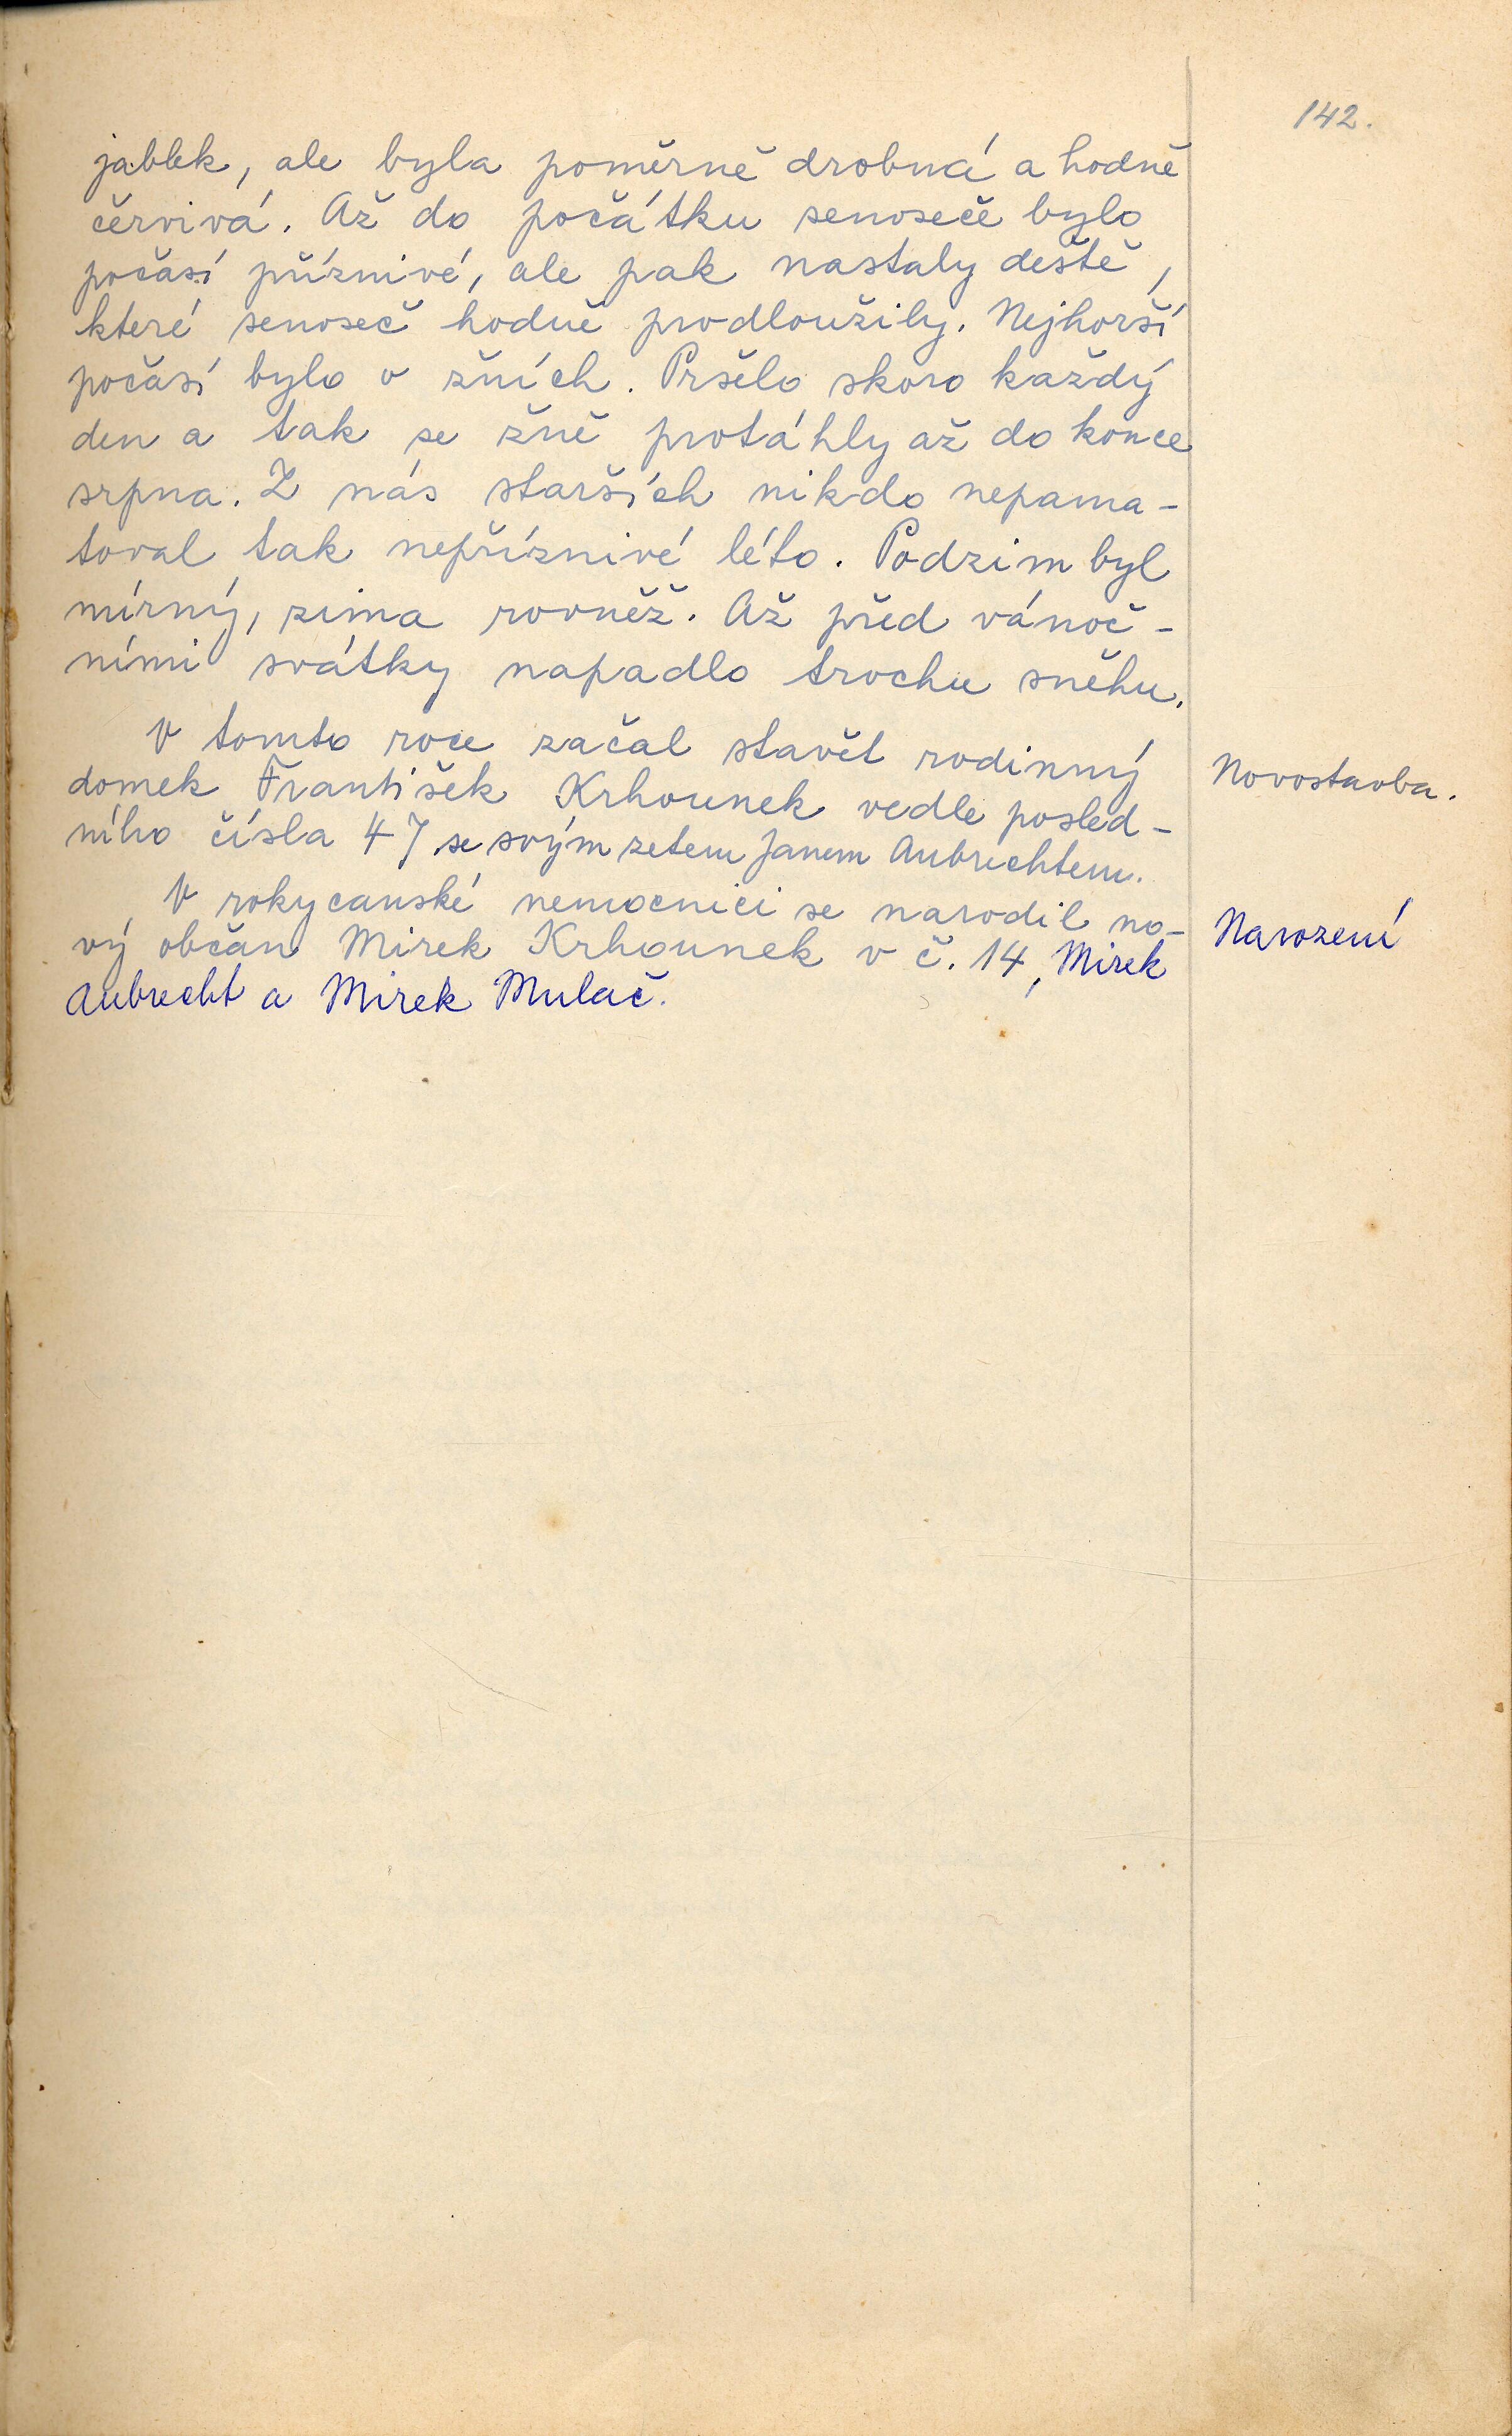 142.
jablek, ale byla poměrně drobná a hodně
červivá. Až do počátku senoseče bylo
počasí příznivé, ale pak nastaly deště,
které senoseč hodně prodloužily. Nejhorší
počasí bylo o žních. Pršelo skoro každý
den a tak se žně protáhly až do konce
srpna. Z nás starších nikdo nepama-
toval tak nepříznivé léto. Podzim byl
mírný, zima rovněž. Až před vánoč-
ními svátky napadlo trochu sněhu.
V tomto roce začal stavět rodinný
Novostavba.
domek František Krhounek vedle posled-
ního čísla 47 se svým zetem Janem Aubrechtem.
V rokycanské nemocnici se narodil no-
Narození
vý občan Mirek Krhounek v č. 14, Mirek
Aubrecht a Mirek Mulač.